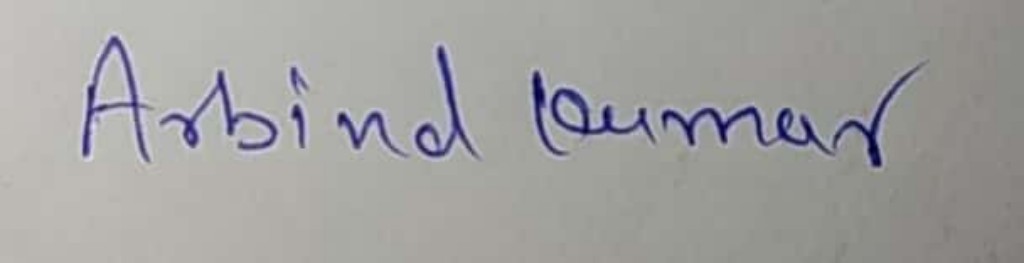 Arbind Kumar